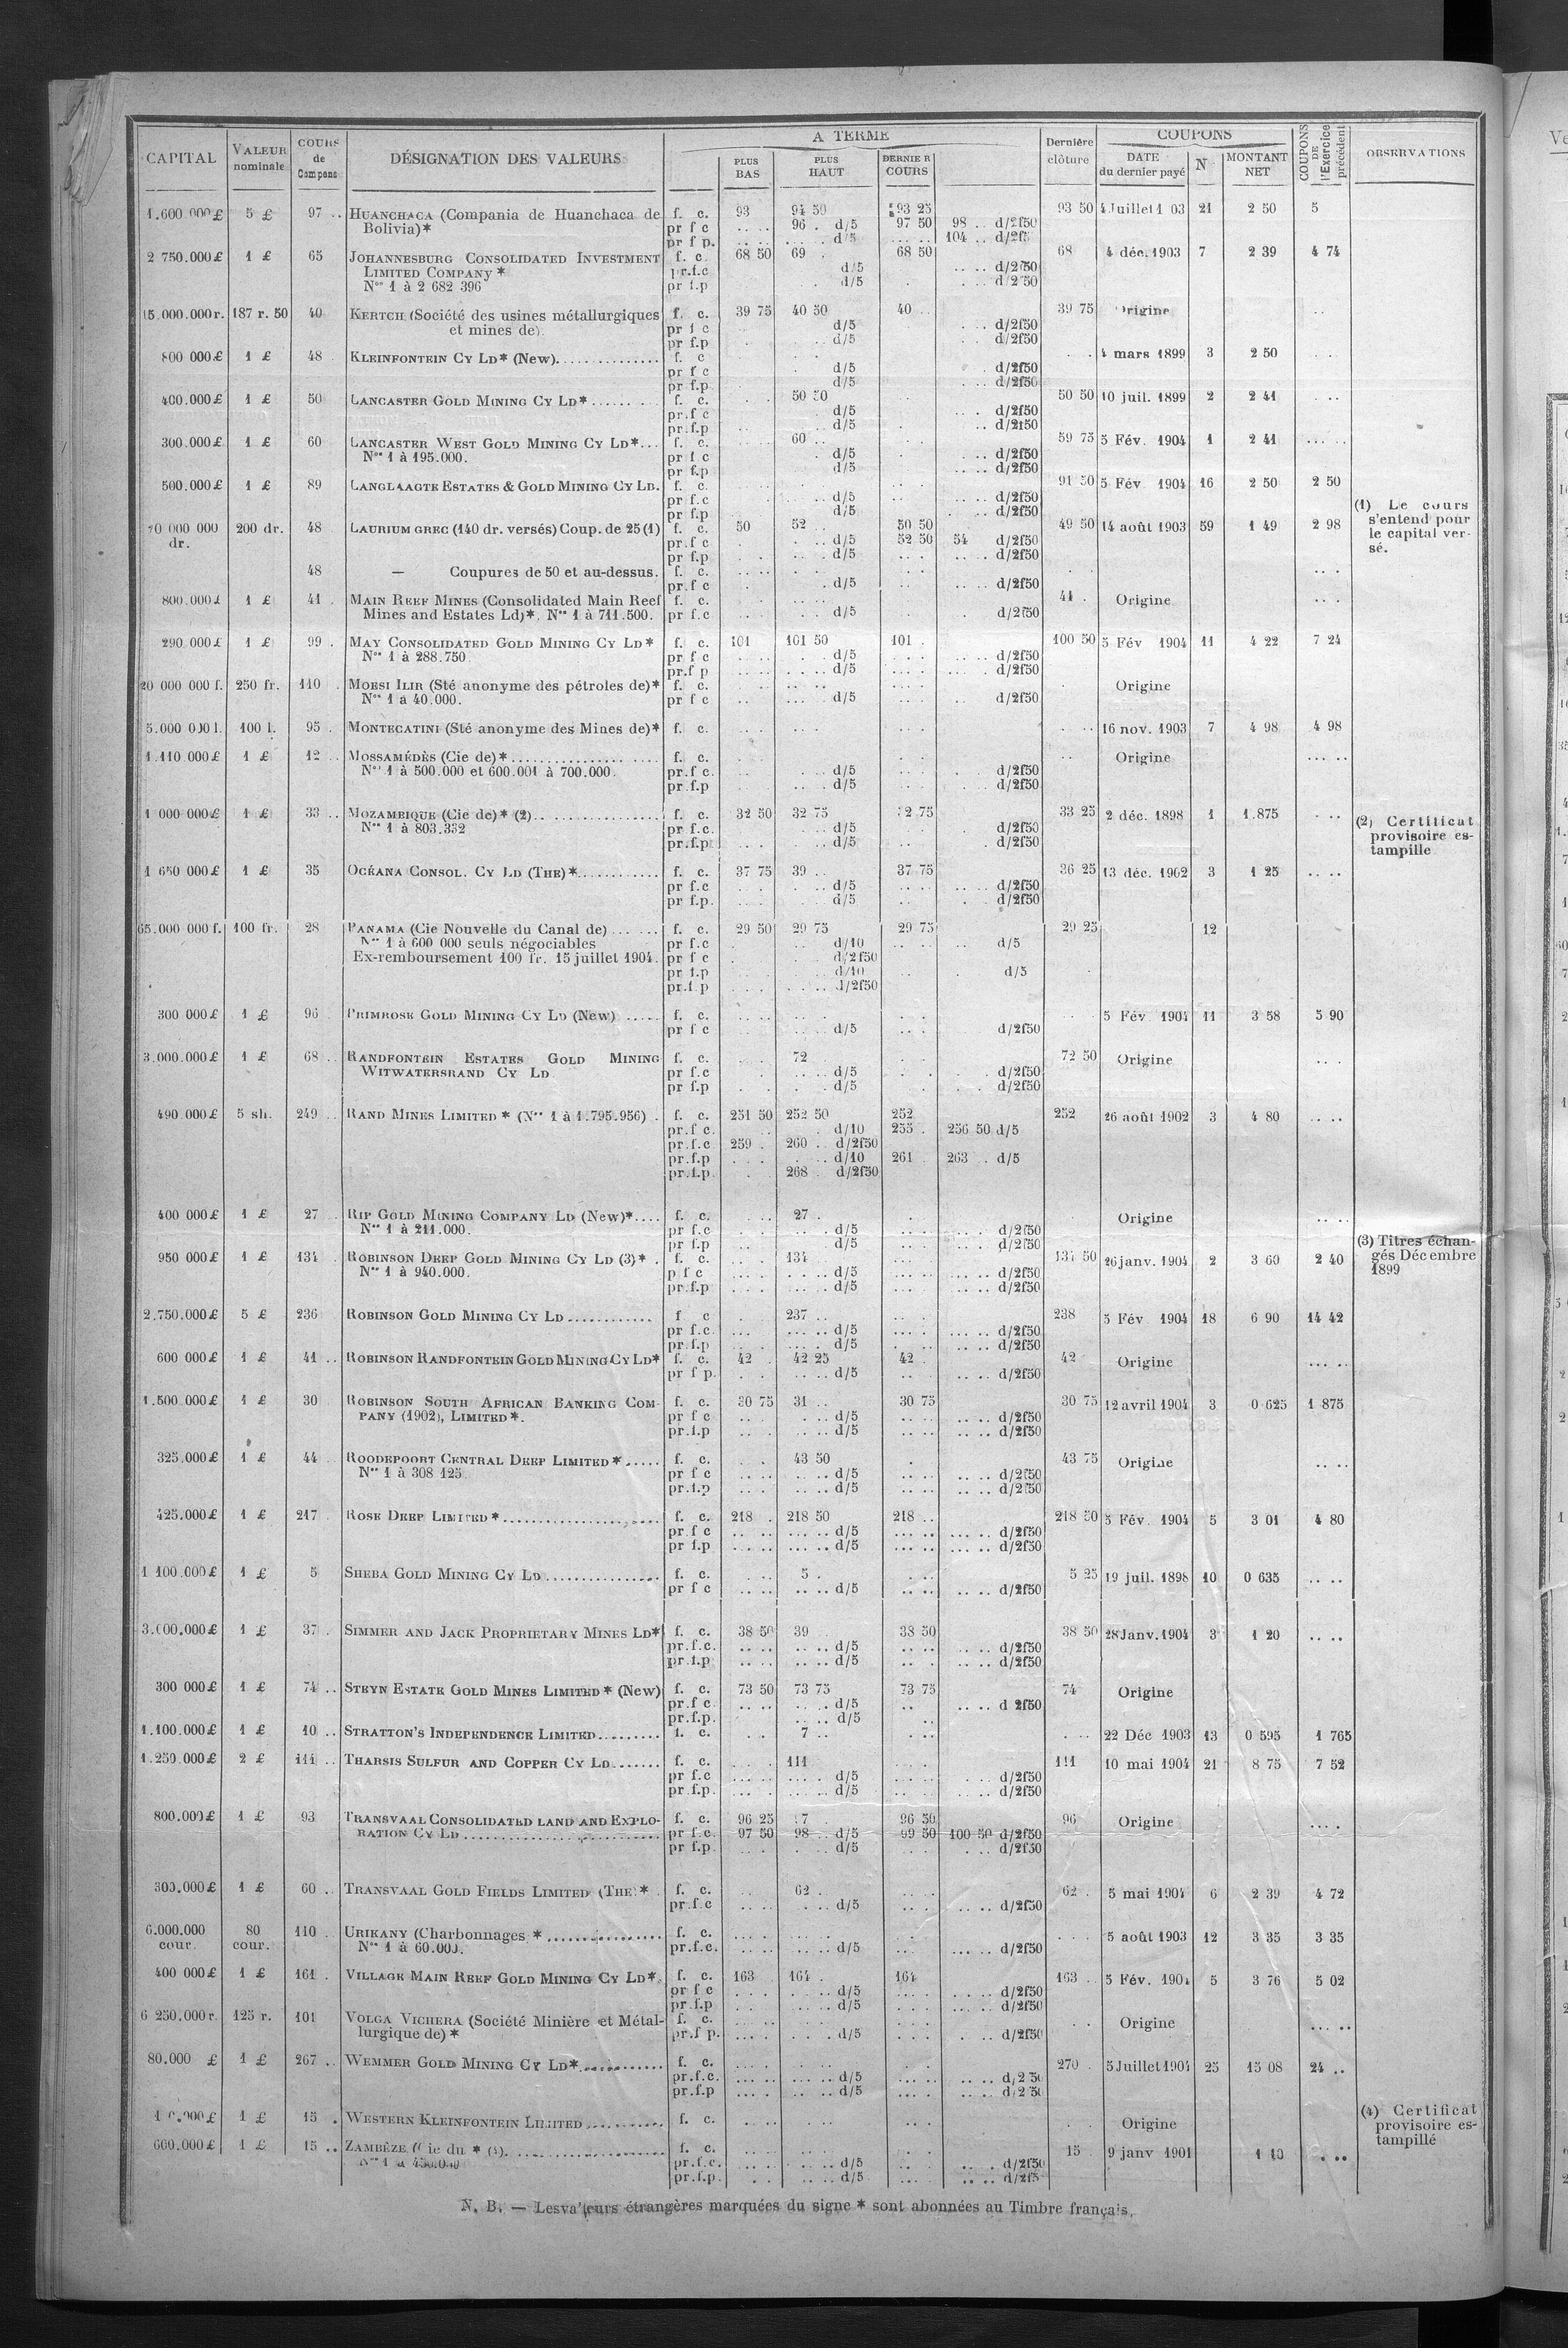 CAPITAL VALEUR nominale COURS de Compens DÉSIGNATION DES VALEURS A TERME PLUS BAS PLUS HAUT DERNIER COURS Dernière clôture COUPONS DATE du dernier payé N MONTANT NET COUPONS DE l'Exercice précédent OBSERVATIONS
1.600.000£ 5 £ 97 .. HUANCHACA (Compania de Huanchaca de f. c. 93 94 50 93 25 93 50 21 2 50 5
Bolivia)* pr f c .. .. 96 . d/5 97 50 98 .. d/2f50
pr f p. d/5 104 .. d/2f5
2 750.000£ 1 £ 65 JOHANNESBURG CONSOLIDATED INVESTMENT f. c. 68 50 69 . 68 50 68 4 déc. 1903 7 2 39 4 74
LIMITED COMPANY * pr.f.c d/5 d/2f50
Nos 1 à 2 682 396 pr f.p d/5 d/2 50
15.000.000 r. 187 r. 50 40 KERTCH (Société des usines métallurgiques f. c. 39 75 40 50 40 .. 39 75 Origine
et mines de). pr f c d/5 d/2f50
pr f.p d/5 d/2f50
800 000£ 1 £ 48 KLEINFONTEIN CY LD* (New). f. c 4 mars 1899 3 2 50
pr f c d/5 d/2f50
pr f.p d/5 d/2f50
400.000£ 1 £ 50 LANCASTER GOLD MINING CY LD* f. c. 50 50 50 50 10 juil. 1899 2 2 41
pr.f c d/5 d/2f50
pr.f.p d/5 d/2f50
300.000£ 1 £ 60 LANCASTER WEST GOLD MINING CY LD*... f. c. 60 .. 59 75 5 Fév. 1904 1 2 41
Nos 1 à 195.000. pr f c d/5 d/2f50
pr f.p d/5 d/2f50
500.000£ 1 £ 89 LANGLAAGTE ESTATES & GOLD MINING CY LD. f. c. 91 50 5 Fév 1904 16 2 50 2 50
pr f.c d/5 d/2f50
pr f.p d/5 d/2f50
(1) Le cours
s'entend pour
le capital ver-
sé.
70 000 000 200 dr. 48 LAURIUM GREC (140 dr. versés) Coup. de 25 (1) f. c. 50 52 .. 50 50 49 50 14 août 1903 59 1 49 2 98
dr. pr.f c d/5 52 50 54 d/2f50
pr f.p d/5 d/2f50
48 — Coupures de 50 et au-dessus. f. c.
pr.f c d/5 d/2f50
800.000£ 1 £ 41 . MAIN REEF MINES (Consolidated Main Reef f. c. 41 . Origine
Mines and Estates Ld)*. Nos 1 à 711.500. pr f.c d/5 d/2f50
290.000£ 1 £ 99 . MAY CONSOLIDATED GOLD MINING CY LD* f. c. 101 101 50 101 . 100 50 5 Fév 1904 11 4 22 7 24
Nos 1 à 288.750 pr f c d/5 d/2f50
pr.f p d/5 d/2f50
20 000 000 f. 250 fr. 110 MOESI ILIR (Sté anonyme des pétroles de)* f. c. Origine
Nos 1 à 40.000. pr f c d/5 d/2f50
5.000 000 l. 100 l. 95 . MONTECATINI (Sté anonyme des Mines de)* f. c. 16 nov. 1903 7 4 98 4 98
1.110 000£ 1 £ 12 .. MOSSAMÉDÈS (Cie de)* f. c. Origine
Nos 1 à 500.000 et 600.001 à 700.000. pr.f c. d/5 d/2f50
pr.f.p d/5 d/2f50
1 000 000£ 1 £ 33 .. MOZAMBIQUE (Cie de)* (2) f. c. 32 50 32 75 32 75 33 25 2 déc. 1898 1 1.875
Nos 1 à 803.332 pr f.c. d/5 d/2f50
pr.f.p d/5 d/2f50
(2) Certificat
provisoire es-
tampille
1 650 000£ 1 £ 35 OCÉANA CONSOL. CY LD (THE)* f. c. 37 75 39 .. 37 75 36 25 13 déc. 1902 3 1 25
pr f.c d/5 d/2f50
pr f.p. d/5 d/2f50
65.000 000 f. 100 fr. 28 PANAMA (Cie Nouvelle du Canal de) f. c. 29 50 29 75 29 75 29 25 12
Nos 1 à 600 000 seuls négociables pr f.c d/10 d/5
Ex-remboursement 100 fr. 15 juillet 1904. pr f c d/2f50
pr f.p d/10 d/5
pr.f p d/2f50
300 000£ 1 £ 96 PRIMROSE GOLD MINING CY LD (New) f. c. 5 Fév 1904 11 3 58 5 90
pr f c d/5 d/2f50
3.000.000£ 1 £ 68 .. RANDFONTEIN ESTATES GOLD MINING f. c. 72 72 50 Origine
WITWATERSRAND CY LD pr f.c d/5 d/2f50
pr f.p d/5 d/2f50
490.000£ 5 sh. 249 .. RAND MINES LIMITED * (Nos 1 à 1.795.956) . f. c. 251 50 252 50 252 252 26 août 1902 3 4 80
pr.f c. d/10 255 . 256 50 d/5
pr.f.c 259 . 260 .. d/2f50
pr.f.p d/10 261 263 .. d/5
pr.f.p. 268 . d/2f50
400 000£ 1 £ 27 RIP GOLD MINING COMPANY LD (New)*.... f. c. 27 . Origine
Nos 1 à 211.000. pr f.c d/5 d/2f50
pr f.p d/5 d/2f50
950 000£ 1 £ 134 ROBINSON DEEP GOLD MINING CY LD (3)* . f. c. 134 137 50 26 janv. 1904 2 3 60 2 40
Nos 1 à 940.000. p f c d/5 d/2f50
pr.f.p d/5 d/2f50
(3) Titres échan-
gés Décembre
1899
2.750.000£ 5 £ 236 ROBINSON GOLD MINING CY LD f c 237 .. 238 5 Fév 1904 18 6 90 14 42
pr f.c. d/5 d/2f50
pr.f.p d/5 d/2f50
600 000£ 1 £ 41 .. ROBINSON RANDFONTEIN GOLD MINING CY LD* f. c. 42 . 42 25 42 . 42 Origine
pr f p. d/5 d/2f50
1.500.000£ 1 £ 30 ROBINSON SOUTH AFRICAN BANKING COM- f. c. 30 75 31 .. 30 75 30 75 12 avril 1904 3 0 625 1 875
PANY (1902), LIMITED *. pr f c d/5 d/2f50
pr.f.p d/5 d/2f50
325.000£ 1 £ 44 ROODEPOORT CENTRAL DEEP LIMITED * ..... f. c. 43 50 43 75 Origine
Nos 1 à 308 125 pr f c d/5 d/2f50
pr.f.p d/5 d/2f50
425.000£ 1 £ 217 ROSE DEEP LIMITED * f. c. 218 . 218 50 218 .. 218 50 5 Fév. 1904 5 3 01 4 80
pr.f c d/5 d/2f50
pr f.p d/5 d/2f50
1 100.000£ 1 £ 5 SHEBA GOLD MINING CY LD f. c. 5 . 5 25 19 juil. 1898 10 0 635
pr f c d/5 d/2f50
3.000.000£ 1 £ 37 . SIMMER AND JACK PROPRIETARY MINES LD* f. c. 38 50 39 . 38 50 38 50 28 Janv. 1904 3 1 20
pr.f.c. d/5 d/2f50
pr.f.p d/5 d/2f50
300 000£ 1 £ 74 .. STEYN ESTATE GOLD MINES LIMITED * (New) f. c. 73 50 73 75 73 75 74 Origine
pr.f c d/5 d 2f50
pr.f.p. d/5
1.100.000£ 1 £ 10 .. STRATTON'S INDEPENDENCE LIMITED f. c. 7 .. 22 Déc 1903 13 0 595 1 765
1.250.000£ 2 £ 111 .. THARSIS SULFUR AND COPPER CY LD....... f. c. 111 111 10 mai 1904 21 8 75 7 52
pr f.c d/5 d/2f50
pr.f.p. d/5 d/2f50
800.000£ 1 £ 93 TRANSVAAL CONSOLIDATED LAND AND EXPLO- f. c. 96 25 96 50 96 Origine
RATION CY LD pr f.c. 97 50 98 .. d/5 99 50 100 50 d/2f50
pr f.p. d/5 d/2f50
300.000£ 1 £ 60 .. TRANSVAAL GOLD FIELDS LIMITED (THE) * f. c. 62 . 62 . 5 mai 1904 6 2 39 4 72
pr.f.c d/5 d/2f50
6.000.000 80 110 URIKANY (Charbonnages * f. c. 5 août 1903 12 3 35 3 35
cour. cour. Nos 1 à 60.000. pr.f.c. d/5 d/2f50
400 000£ 1 £ 161 . VILLAGE MAIN REEF GOLD MINING CY LD*. f. c. 163 164 . 164 163 .. 5 Fév. 1904 5 3 76 5 02
pr f c d/5 d/2f50
pr.f.p d/5 d/2f50
6 250.000 r. 125 r. 101 VOLGA VICHERA (Société Minière et Métal- f. c. Origine
lurgique de) * pr.f p. d/5 d/2f50
80.000 £ 1 £ 267 .. WEMMER GOLD MINING CY LD* f. c. 270 . 5 Juillet 1904 25 15 08 24 ..
pr.f.c. d/5 d/2 50
pr.f.p d/5 d/2 50
1 £ 15 . WESTERN KLEINFONTEIN LIMITED f. c. Origine
(4) Certificat
provisoire es-
tampillé
600.000£ 1 £ 15 .. ZAMBÈZE f. c. 15 9 janv 1901 1 10
pr.f.c. d/5 d/2f50
pr.f.p. d/5 d/2f5
N. B. — Les valeurs étrangères marquées du signe * sont abonnées au Timbre français.